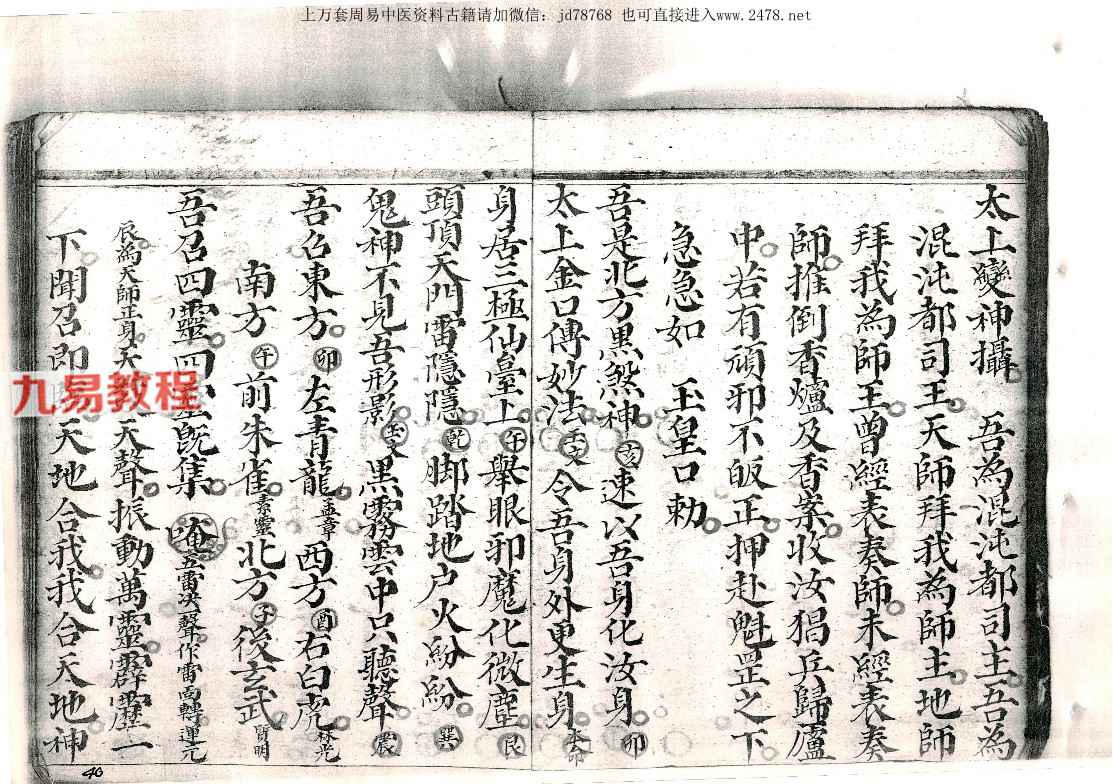 上万套周易中医资料古籍请加微信：jd78768 也可直接进入www.2478.net
太上變神攝 吾為混沌都司主吾為
混沌都司王天師拜我為師主地師
拜我為師王曾經表奏師未經表奏
師推倒香爐及香案收汝猖兵歸廬
中若有頑邪不皈正押赴魁罡之下
急急如 玉皇口勅
吾是北方黑煞神亥速以吾身化汝身卯
太上金口傳妙法玉文令吾身外更生身
身居三極仙臺上午舉眼邪魔化微塵艮
頭頂天門雷隱隱乾脚踏地户火紛紛巽
鬼神不見吾形影玉文黑霧雲中只聽聲
吾召東方卯左青龍孟章西方酉右白虎
南方午前朱雀 北方子後玄武
吾召四靈四 既集唵五雷
辰為天師正身天 天聲振動萬靈霹靂一
下聞召即 天地合我我合天地神
九易教程
40